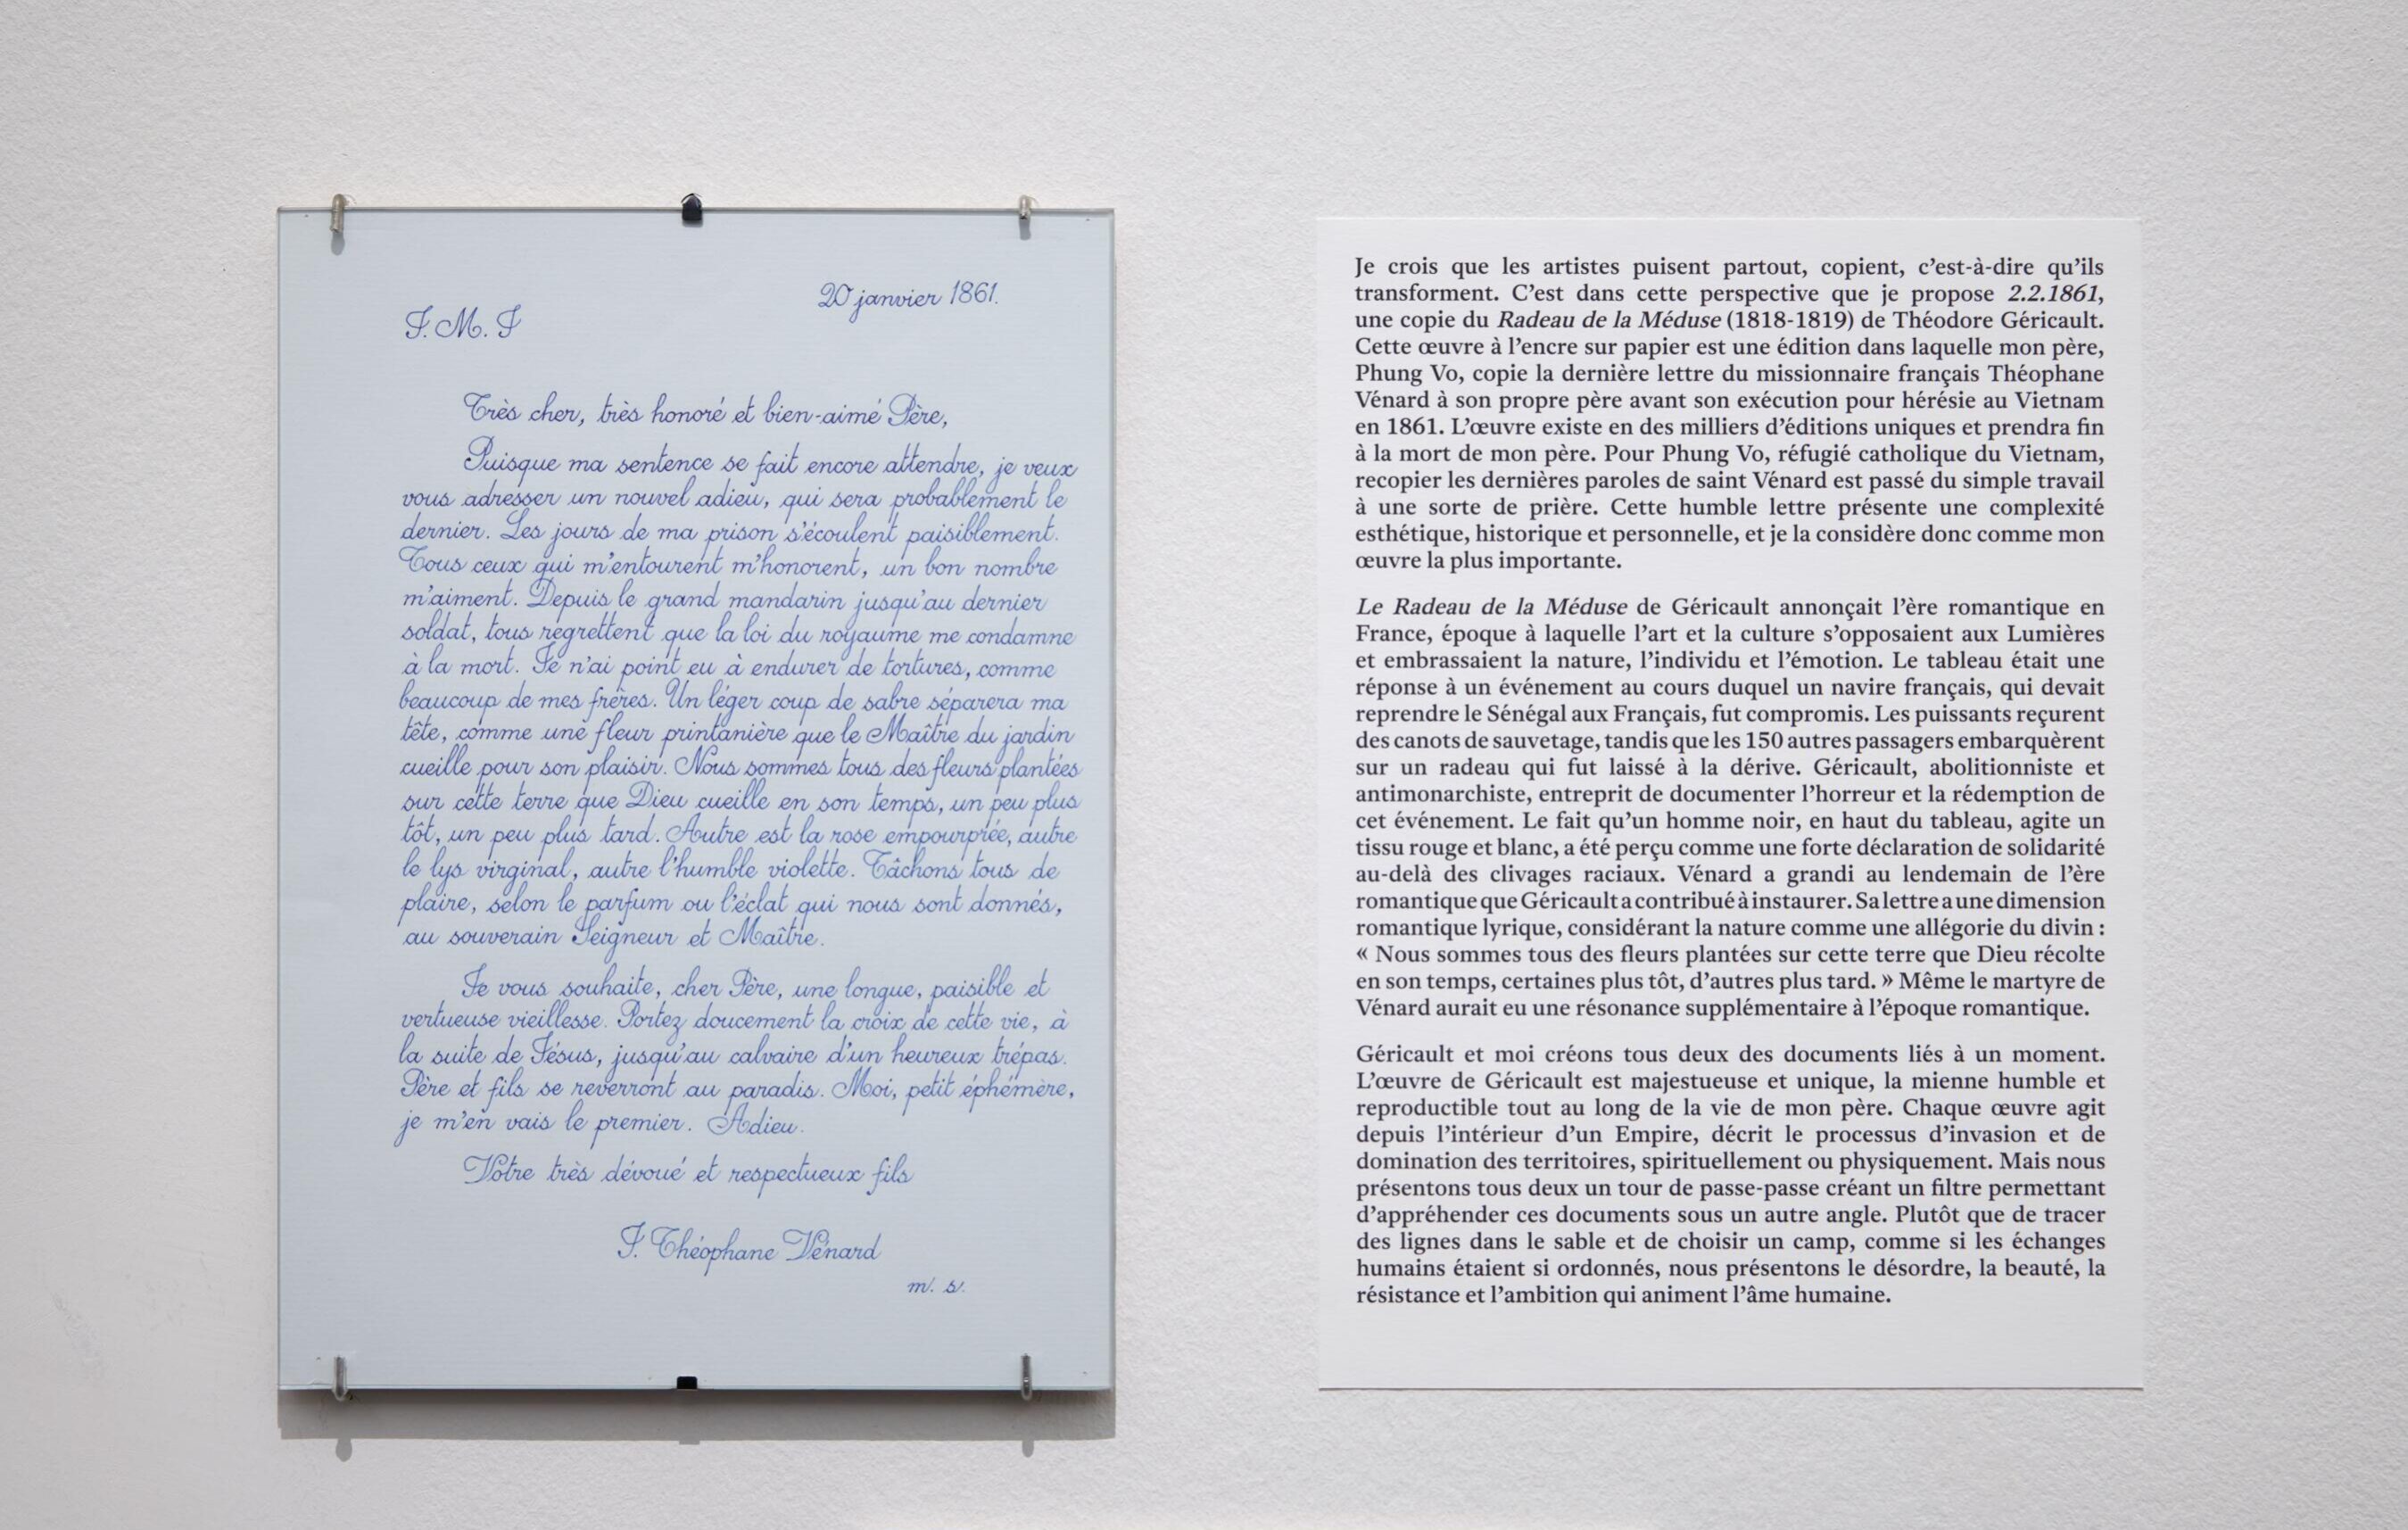 20 janvier 1861.
J. M. J
Très cher, très honoré et bien-aimé Père,
Puisque ma sentence se fait encore attendre, je veux
vous adresser un nouvel adieu, qui sera probablement le
dernier. Les jours de ma prison s'écoulent paisiblement.
Tous ceux qui m'entourent m'honorent, un bon nombre
m'aiment. Depuis le grand mandarin jusqu'au dernier
soldat, tous regrettent que la loi du royaume me condamne
à la mort. Je n'ai point eu à endurer de tortures, comme
beaucoup de mes frères. Un léger coup de sabre séparera ma
tête, comme une fleur printanière que le Maître du jardin
cueille pour son plaisir. Nous sommes tous des fleurs plantées
sur cette terre que Dieu cueille en son temps, un peu plus
tôt, un peu plus tard. Autre est la rose empourprée, autre
le lys virginal, autre l'humble violette. Tâchons tous de
plaire, selon le parfum ou l'éclat qui nous sont donnés,
au souverain Seigneur et Maître.
Je vous souhaite, cher Père, une longue, paisible et
vertueuse vieillesse. Portez doucement la croix de cette vie, à
la suite de Jésus, jusqu'au calvaire d'un heureux trépas.
Père et fils se reverront au paradis. Moi, petit éphémère,
je m'en vais le premier. Adieu.
Votre très dévoué et respectueux fils
J. Théophane Vénard
m. s.
Je crois que les artistes puisent partout, copient, c'est-à-dire qu'ils
transforment. C'est dans cette perspective que je propose 2.2.1861,
une copie du Radeau de la Méduse (1818-1819) de Théodore Géricault.
Cette œuvre à l'encre sur papier est une édition dans laquelle mon père,
Phung Vo, copie la dernière lettre du missionnaire français Théophane
Vénard à son propre père avant son exécution pour hérésie au Vietnam
en 1861. L'œuvre existe en des milliers d'éditions uniques et prendra fin
à la mort de mon père. Pour Phung Vo, réfugié catholique du Vietnam,
recopier les dernières paroles de saint Vénard est passé du simple travail
à une sorte de prière. Cette humble lettre présente une complexité
esthétique, historique et personnelle, et je la considère donc comme mon
œuvre la plus importante.
Le Radeau de la Méduse de Géricault annonçait l'ère romantique en
France, époque à laquelle l'art et la culture s'opposaient aux Lumières
et embrassaient la nature, l'individu et l'émotion. Le tableau était une
réponse à un événement au cours duquel un navire français, qui devait
reprendre le Sénégal aux Français, fut compromis. Les puissants reçurent
des canots de sauvetage, tandis que les 150 autres passagers embarquèrent
sur un radeau qui fut laissé à la dérive. Géricault, abolitionniste et
antimonarchiste, entreprit de documenter l'horreur et la rédemption de
cet événement. Le fait qu'un homme noir, en haut du tableau, agite un
tissu rouge et blanc, a été perçu comme une forte déclaration de solidarité
au-delà des clivages raciaux. Vénard a grandi au lendemain de l'ère
romantique que Géricault a contribué à instaurer. Sa lettre a une dimension
romantique lyrique, considérant la nature comme une allégorie du divin :
« Nous sommes tous des fleurs plantées sur cette terre que Dieu récolte
en son temps, certaines plus tôt, d'autres plus tard. » Même le martyre de
Vénard aurait eu une résonance supplémentaire à l'époque romantique.
Géricault et moi créons tous deux des documents liés à un moment.
L'œuvre de Géricault est majestueuse et unique, la mienne humble et
reproductible tout au long de la vie de mon père. Chaque œuvre agit
depuis l'intérieur d'un Empire, décrit le processus d'invasion et de
domination des territoires, spirituellement ou physiquement. Mais nous
présentons tous deux un tour de passe-passe créant un filtre permettant
d'appréhender ces documents sous un autre angle. Plutôt que de tracer
des lignes dans le sable et de choisir un camp, comme si les échanges
humains étaient si ordonnés, nous présentons le désordre, la beauté, la
résistance et l'ambition qui animent l'âme humaine.